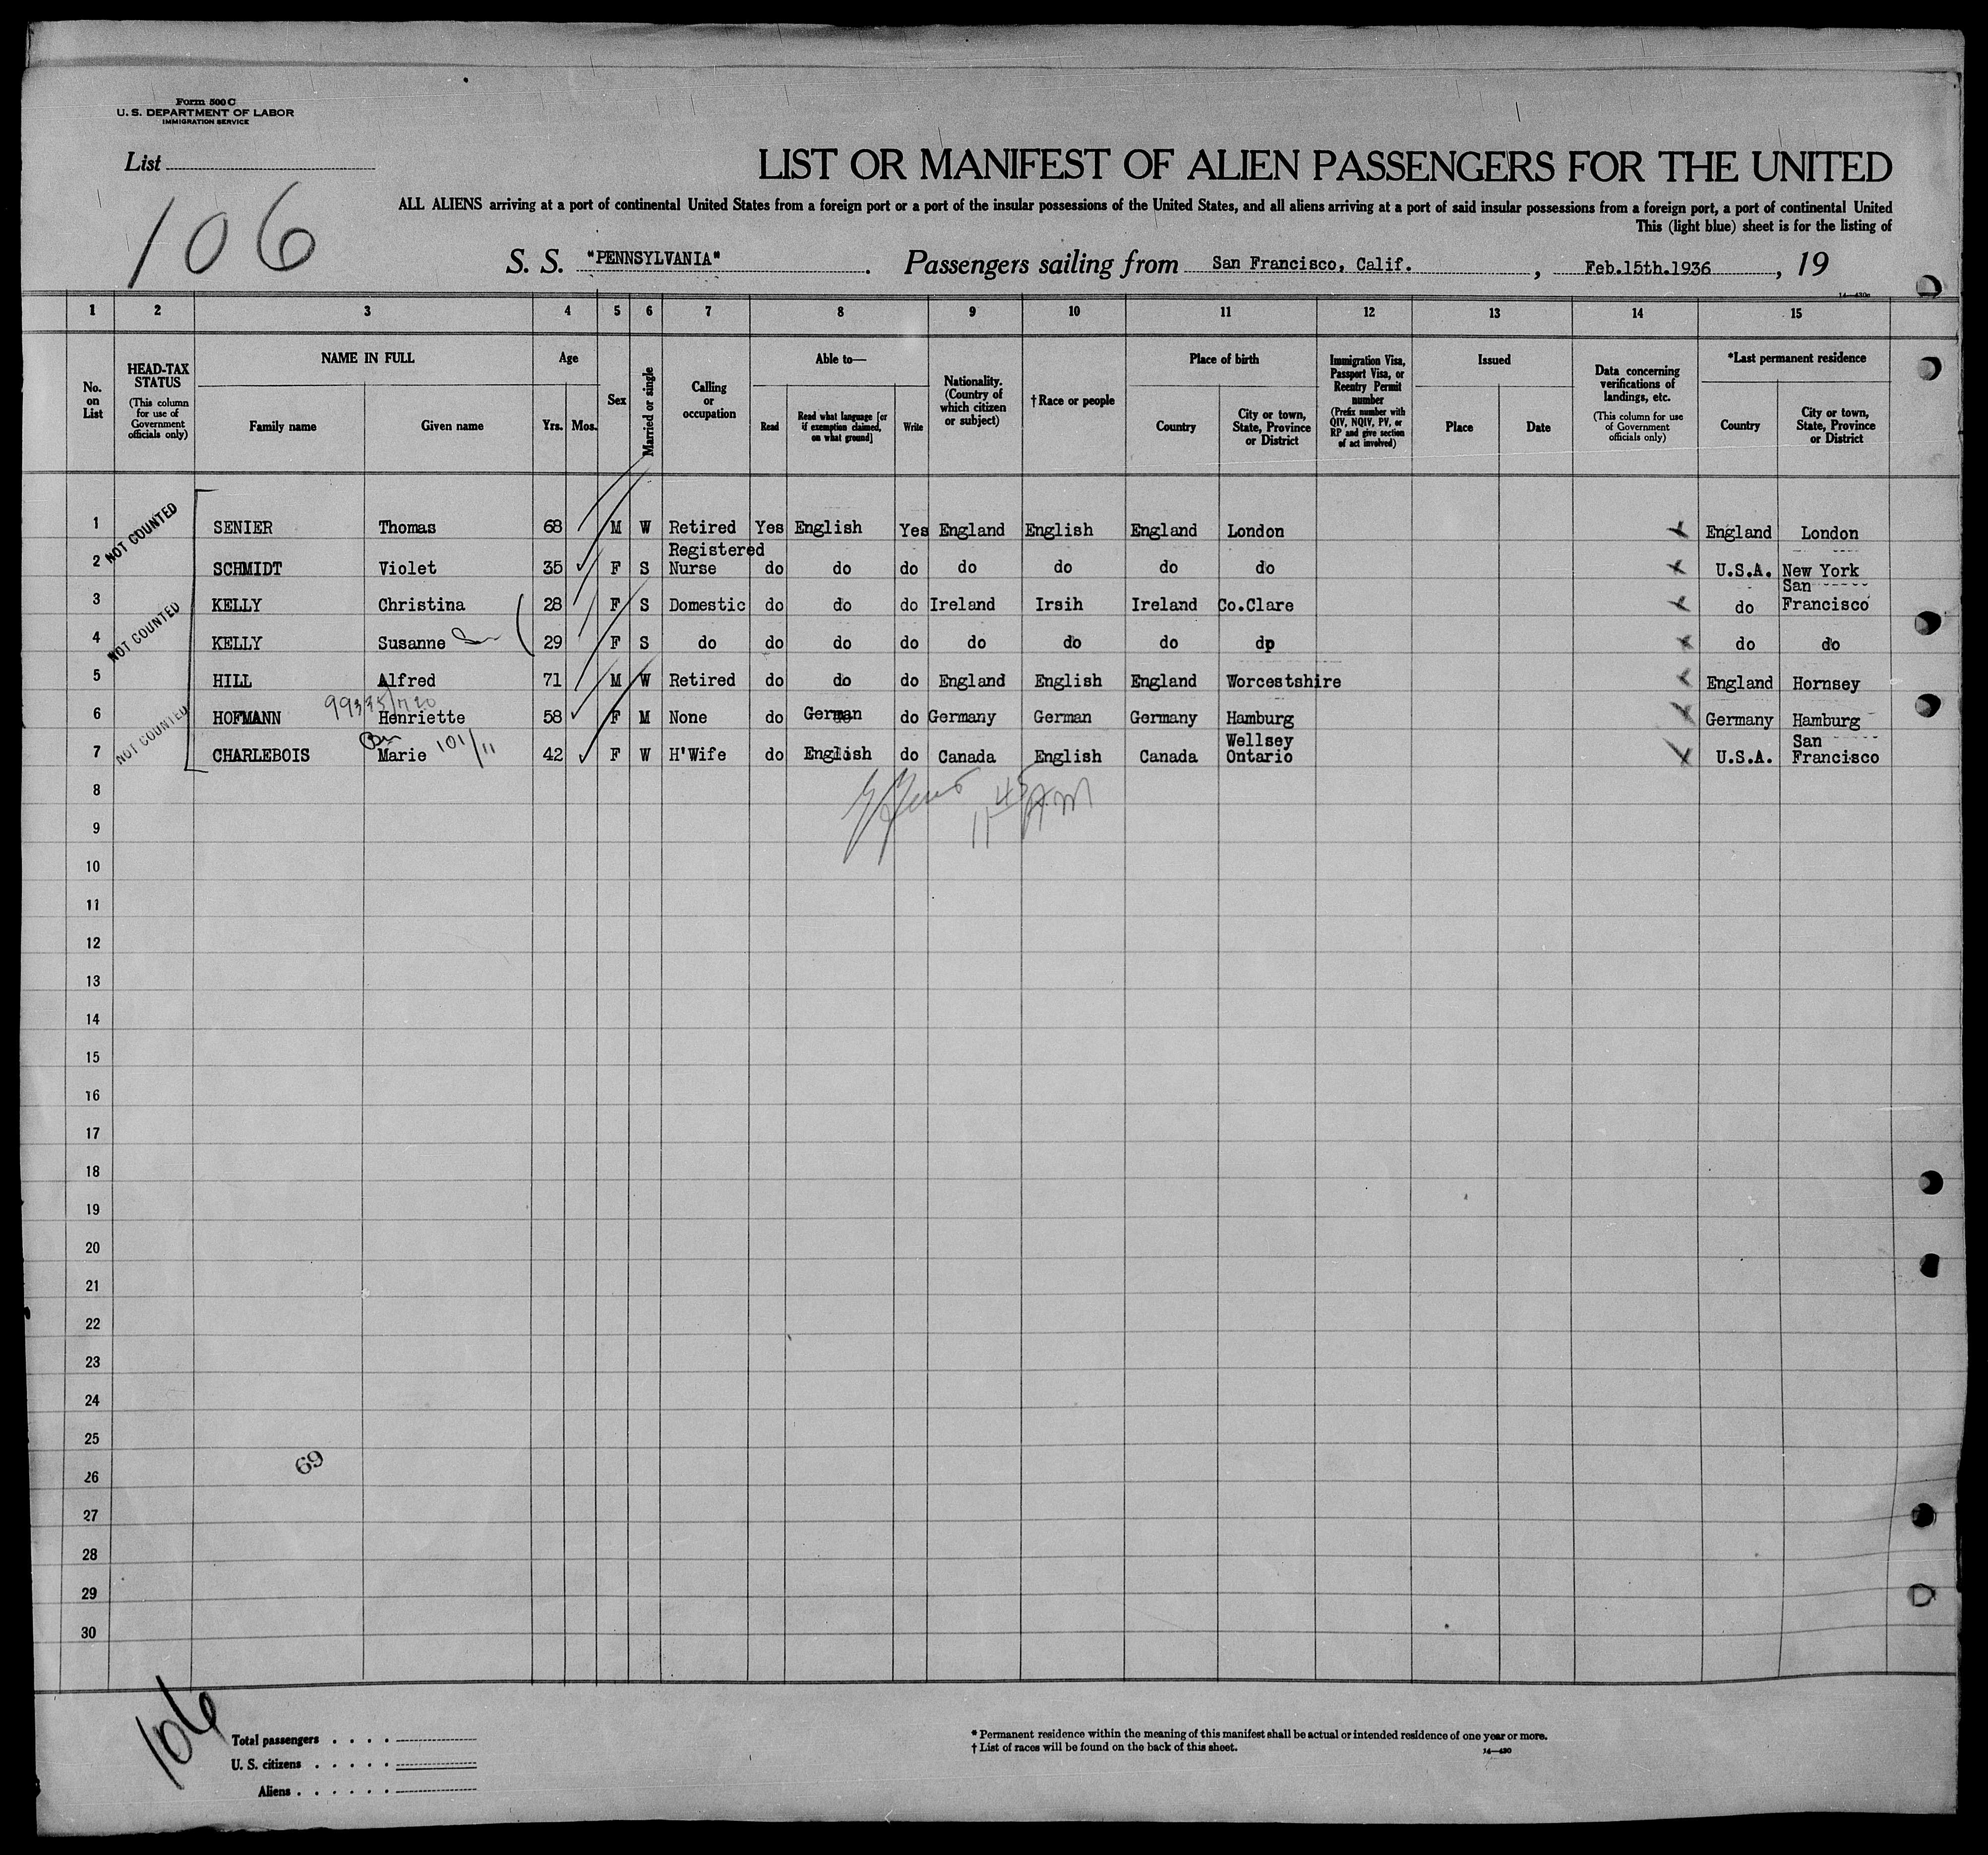 Form 500 C
U. S. DEPARTMENT OF LABOR
IMMIGRATION SERVICE
List
106
LIST OR MANIFEST OF ALIEN PASSENGERS FOR THE UNITED
ALL ALIENS arriving at a port of continental United States from a foreign port or a port of the insular possessions of the United States, and all aliens arriving at a port of said insular possessions from a foreign port, a port of continental United
This (light blue) sheet is for the listing of
S. S. "PENNSYLVANIA". Passengers sailing from San Francisco, Calif., Feb.15th.1936, 19
1 2 3 4 5 6 7 8 9 10 11 12 13 14 15
No. on List
HEAD-TAX STATUS (This column for use of Government officials only)
NAME IN FULL Family name Given name
Age Yrs. Mos.
Sex
Married or single
Calling or occupation
Able to— Read Read what language [or if exemption claimed, on what ground] Write
Nationality. (Country of which citizen or subject)
†Race or people
Place of birth Country City or town, State, Province or District
Immigration Visa, Passport Visa, or Reentry Permit number (Prefix number with QIV, NQIV, PV, or RP and give section of act involved)
Issued Place Date
Data concerning verifications of landings, etc. (This column for use of Government officials only)
*Last permanent residence Country City or town, State, Province or District
NOT COUNTED
1 SENIER Thomas 68 M W Retired Yes English Yes England English England London England London
2 SCHMIDT Violet 35 F S Registered Nurse do do do do do do do U.S.A. New York
NOT COUNTED
3 KELLY Christina 28 F S Domestic do do do Ireland Irsih Ireland Co.Clare do San Francisco
4 KELLY Susanne 29 F S do do do do do do do dp do do
5 HILL Alfred 71 M W Retired do do do England English England Worcestshire England Hornsey
NOT COUNTED
6 HOFMANN Henriette 58 F M None do German do Germany German Germany Hamburg Germany Hamburg
7 CHARLEBOIS Marie 101/11 42 F W H'Wife do English do Canada English Canada Wellsey Ontario U.S.A. San Francisco
11 45 AM
8
9
10
11
12
13
14
15
16
17
18
19
20
21
22
23
24
25
69
26
27
28
29
30
106
Total passengers
U. S. citizens
Aliens
* Permanent residence within the meaning of this manifest shall be actual or intended residence of one year or more.
† List of races will be found on the back of this sheet.
14—430